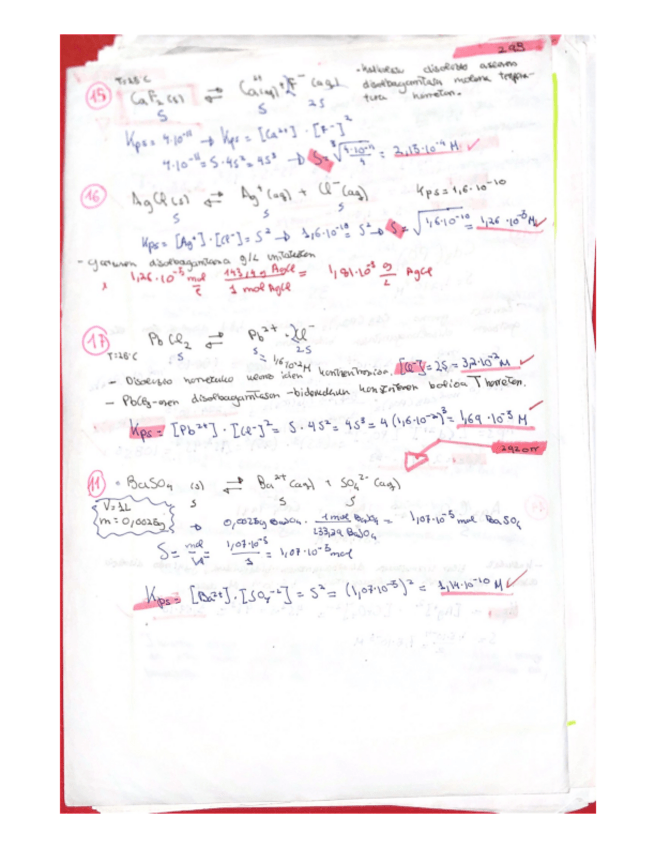 293
T=25°C
15 CaF₂(s) ⇄ Ca²⁺(aq) + 2F⁻(aq)
disolbagarritasun molarra tenpera-
tura horretan.
S S 2S
Kps = 4·10⁻¹¹ → Kps = [Ca²⁺]·[F⁻]²
4·10⁻¹¹ = S·4S² = 4S³ → S = ³√(4·10⁻¹¹/4) = 2,15·10⁻⁴ M ✓
16 AgCl(s) ⇄ Ag⁺(aq) + Cl⁻(aq) Kps = 1,6·10⁻¹⁰
S S S
Kps = [Ag⁺]·[Cl⁻] = S² → 1,6·10⁻¹⁰ = S² → S = √1,6·10⁻¹⁰ = 1,26·10⁻⁵ M ✓
- disolbagarritasuna g/L unitatetan
1,26·10⁻⁵ mol/L · 143,4 g AgCl/1 mol AgCl = 1,81·10⁻³ g/L AgCl
17 PbCl₂ ⇄ Pb²⁺ · 2Cl⁻
T=25°C S S 2S
S = 1,6·10⁻² M
- Disoluzio horretako kloruro ioien kontzentrazioa. [Cl⁻] = 2S = 3,2·10⁻² M ✓
- PbCl₂-aren disolbagarritasun-biderkaduren konstantearen balioa T horretan.
Kps = [Pb²⁺]·[Cl⁻]² = S·4S² = 4S³ = 4(1,6·10⁻²)³ = 1,69·10⁻⁵ M ✓
292 orr
11 - BaSO₄ (s) ⇄ Ba²⁺(aq) + SO₄²⁻(aq)
V = 1L
m = 0,0025g
S S S
→ 0,0025g BaSO₄ · 1 mol BaSO₄/233,2g BaSO₄ = 1,07·10⁻⁵ mol BaSO₄
S = mol/V = 1,07·10⁻⁵/1 = 1,07·10⁻⁵ mol
Kps = [Ba²⁺]·[SO₄⁻²] = S² = (1,07·10⁻⁵)² = 1,14·10⁻¹⁰ M ✓